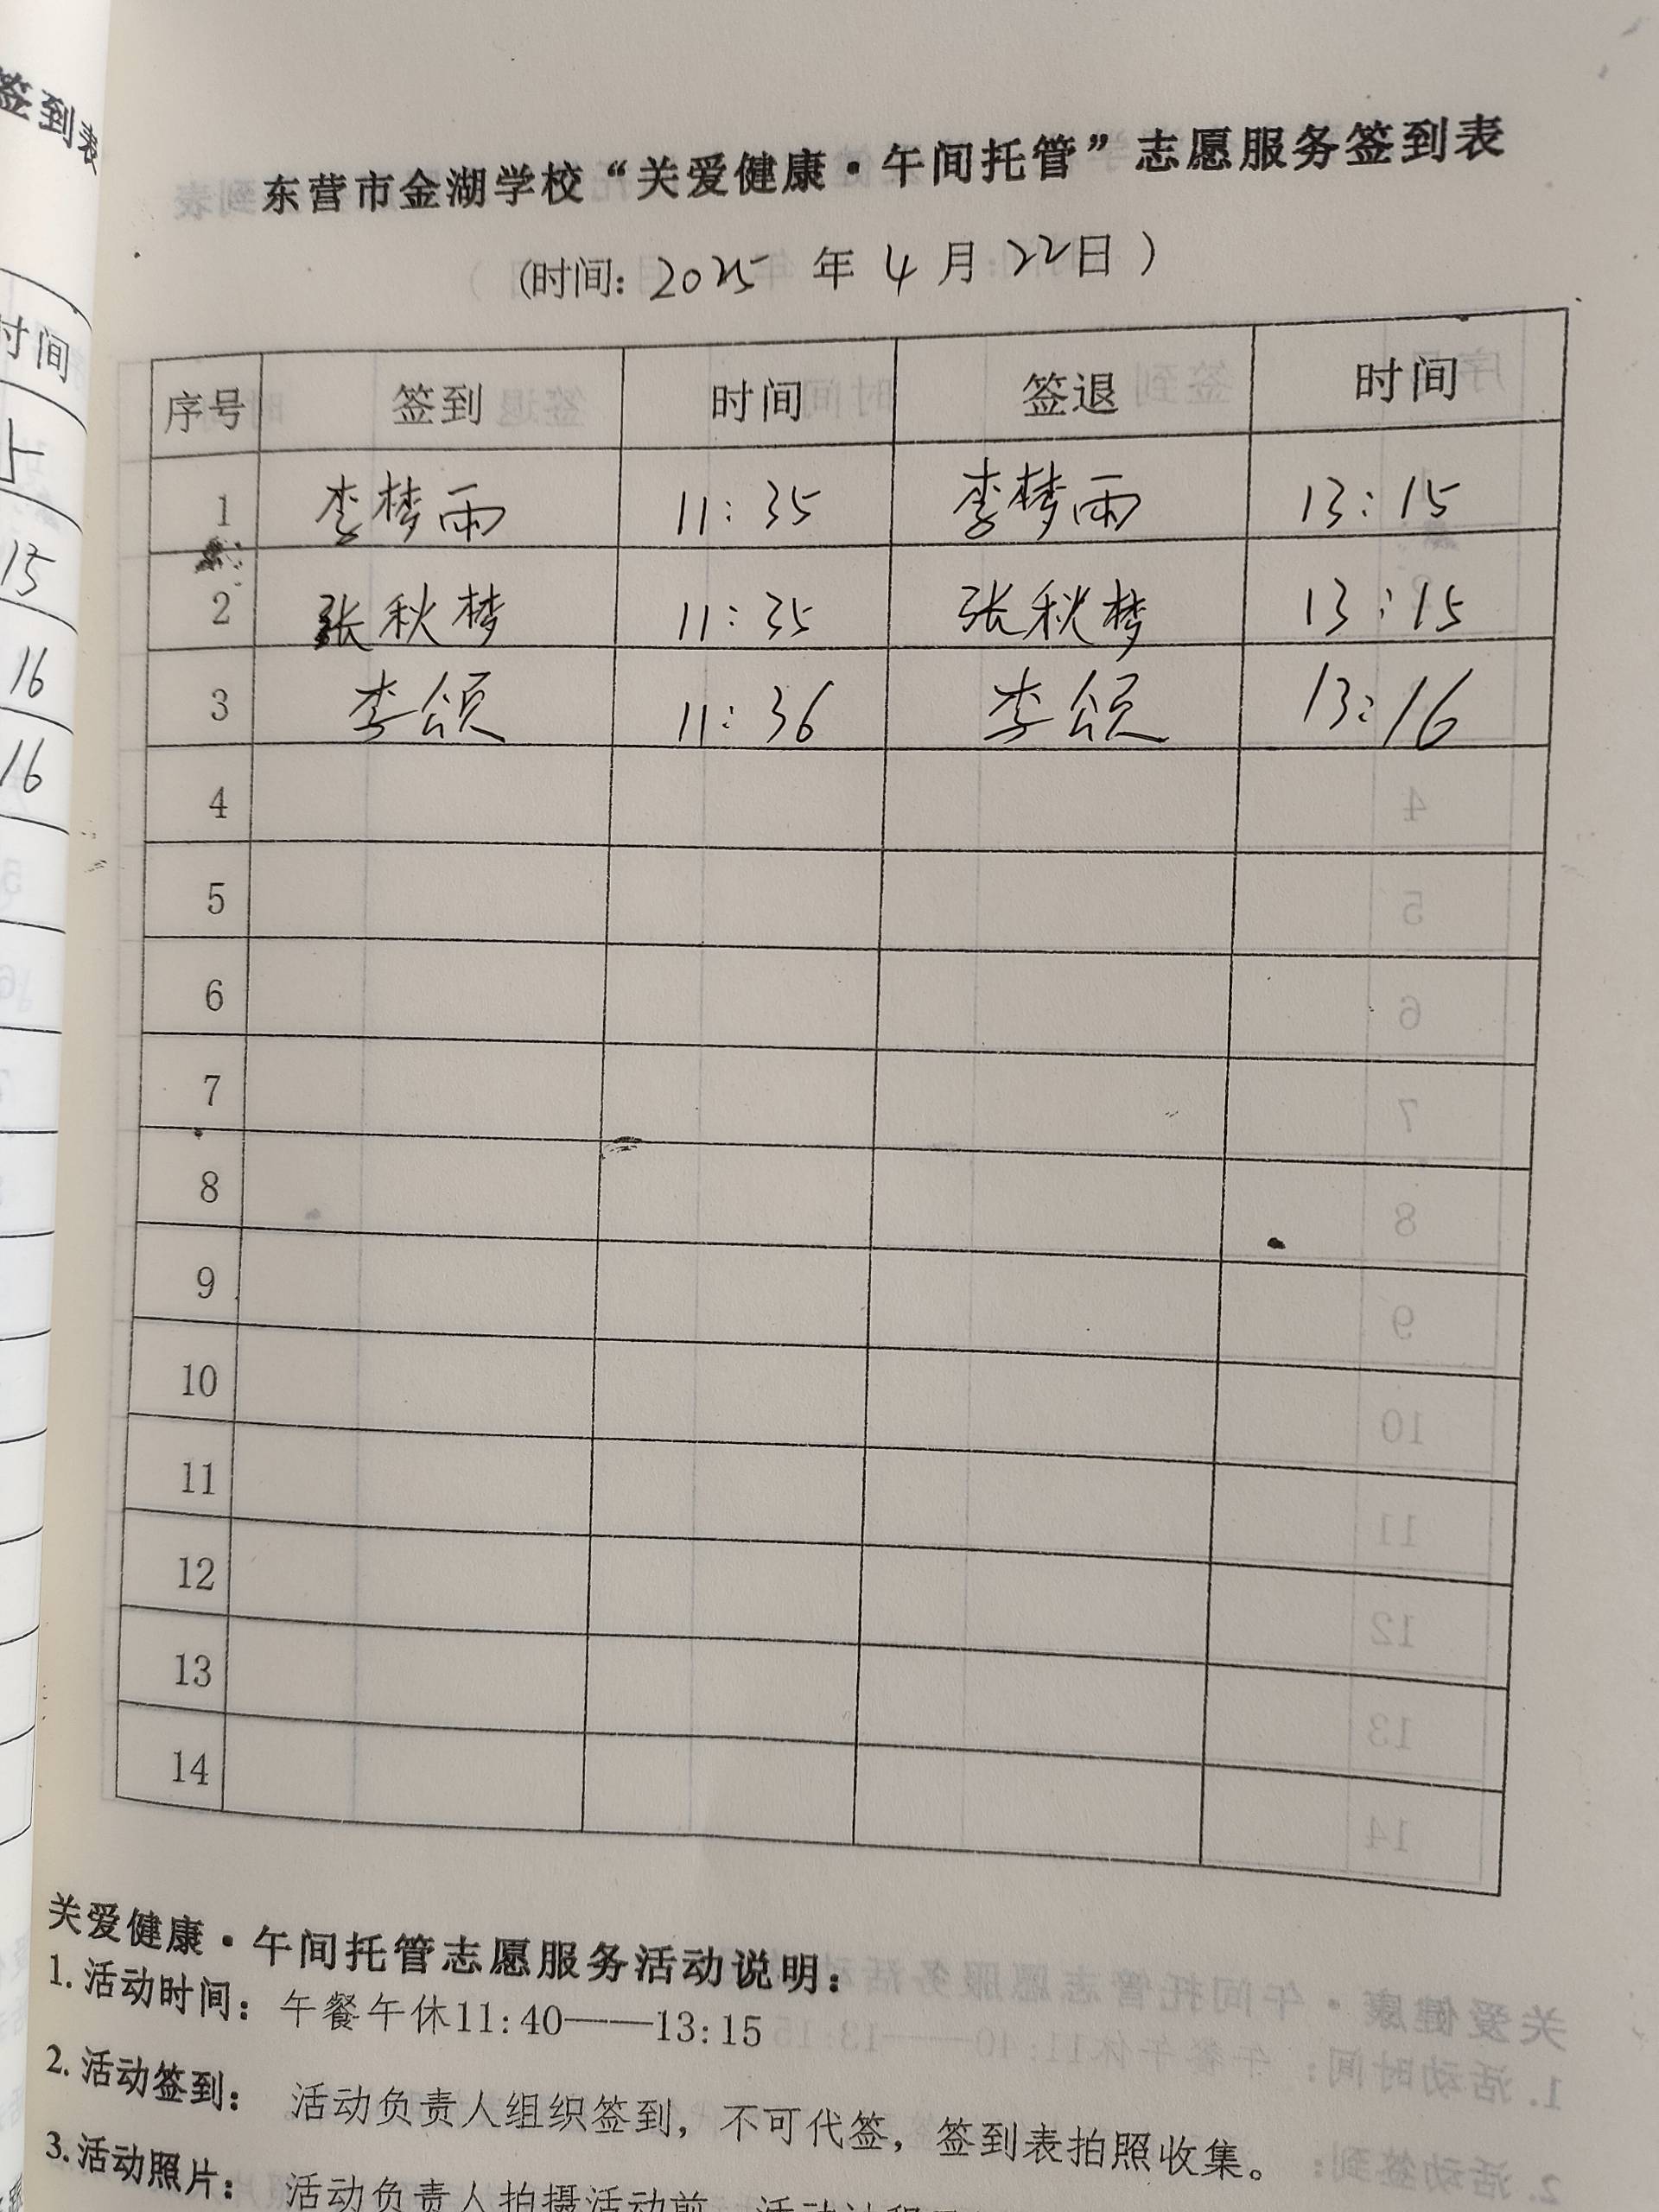 签到表
时间
15
16
16
东营市金湖学校“关爱健康·午间托管”志愿服务签到表
(时间: 2025 年 4 月 22日 )
序号 签到 时间 签退 时间
1 李梦雨 11:35 李梦雨 13:15
2 张秋梦 11:35 张秋梦 13:15
3 李颂 11:36 李颂 13:16
4
5
6
7
8
9
10
11
12
13
14
关爱健康·午间托管志愿服务活动说明:
1.活动时间: 午餐午休11:40——13:15
2.活动签到: 活动负责人组织签到,不可代签,签到表拍照收集。
3.活动照片: 活动负责人拍摄活动前